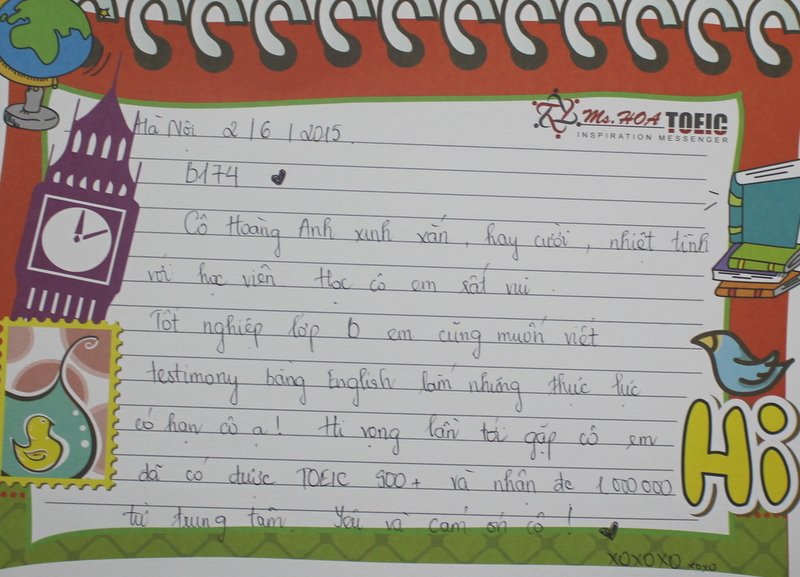 Ms. HOA TOEIC
INSPIRATION MESSENGER
Hà Nội 2/6/2015.
B174
Cô Hoàng Anh xinh xắn, hay cười, nhiệt tình
với học viên. Học cô em rất vui.
Tốt nghiệp lớp B em cũng muốn viết
testimony bằng English lắm nhưng thực lực
có hạn cô ạ! Hi vọng lần tới gặp cô em
đã có được TOEIC 900+ và nhận đc 1 000 000
từ trung tâm. Yêu và cảm ơn cô!
XOXOXO xoxo
Hi